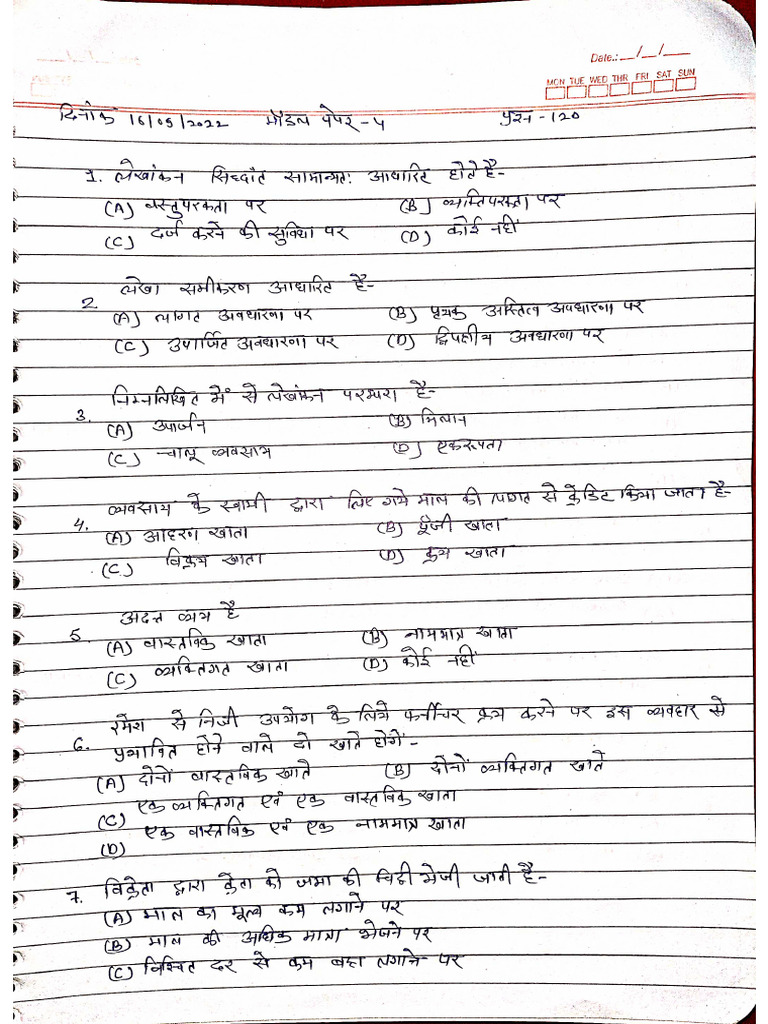 Date.: __/__/__
MON TUE WED THR FRI SAT SUN
दिनांक 16/05/2022 मॉडल पेपर - 4 प्रश्न - 120
1. लेखांकन सिद्धांत सामान्यतः आधारित होते है-
(A) वस्तुपरकता पर (B) व्यक्तिपरकता पर
(C) दर्ज करने की सुविधा पर (D) कोई नहीं
2 लेखा समीकरण आधारित है-
(A) लागत अवधारणा पर (B) पृथक अस्तित्व अवधारणा पर
(C) उपार्जित अवधारणा पर (D) द्विपक्षीय अवधारणा पर
3. निम्नलिखित में से लेखांकन परम्परा है-
(A) उपार्जन (B) मिलान
(C) चालू व्यवसाय (D) एकरूपता
4. व्यवसाय के स्वामी द्वारा लिए गये माल की लागत से क्रेडिट किया जाता है-
(A) आहरण खाता (B) पूँजी खाता
(C) विक्रय खाता (D) क्रय खाता
5. अदत्त व्यय है
(A) वास्तविक खाता (B) नाममात्र खाता
(C) व्यक्तिगत खाता (D) कोई नहीं
6. रमेश से निजी उपयोग के लिये फर्नीचर क्रय करने पर इस व्यवहार से
प्रभावित होने वाले दो खाते होगें-
(A) दोनों वास्तविक खाते (B) दोनों व्यक्तिगत खाते
(C) एक व्यक्तिगत एवं एक वास्तविक खाता
(D) एक वास्तविक एवं एक नाममात्र खाता
7. विक्रेता द्वारा क्रेता को जमा की चिट्ठी भेजी जाती है-
(A) माल का मूल्य कम लगाने पर
(B) माल की अधिक मात्रा भेजने पर
(C) निश्चित दर से कम बट्टा लगाने पर